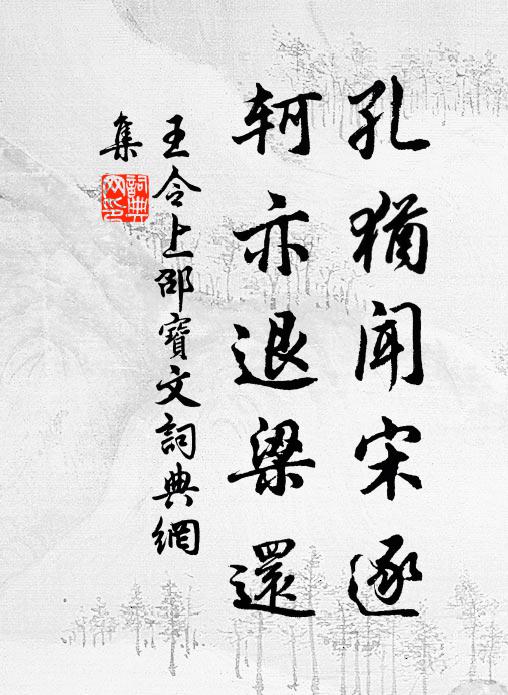 孔猶聞宋逐
軻亦退梁還
王令上邵寶文詞典網
集
詞典網印